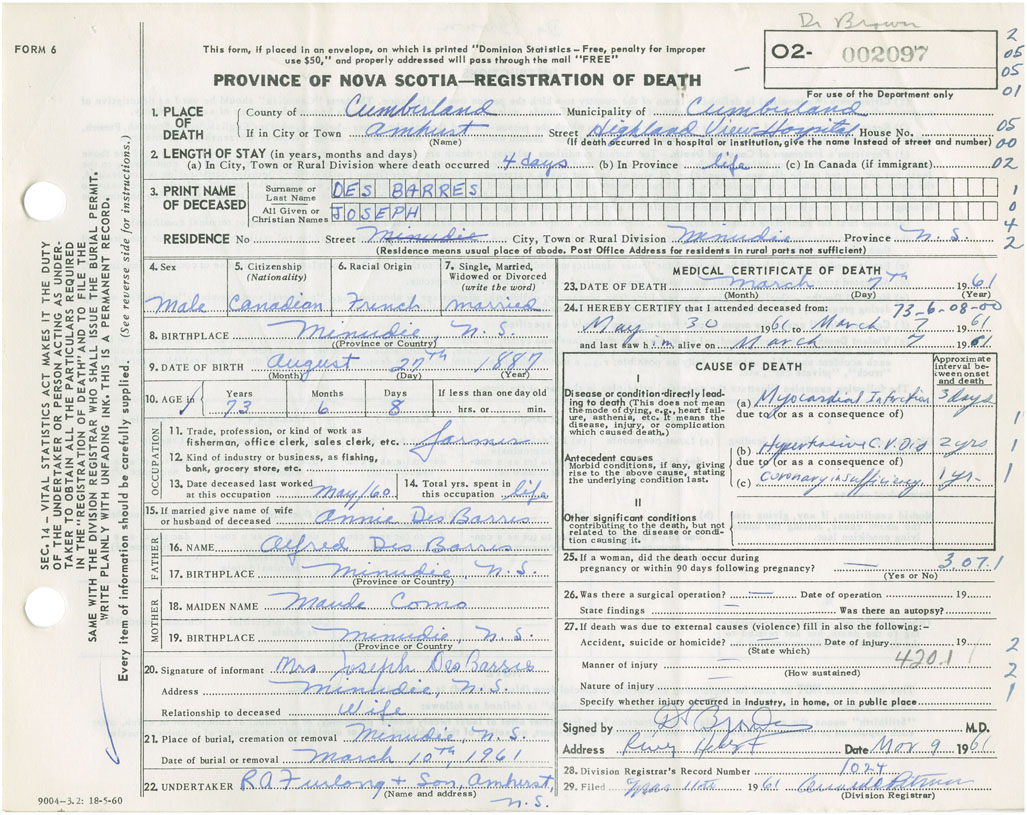 Dr Brown
FORM 6
This form, if placed in an envelope, on which is printed "Dominion Statistics – Free, penalty for improper
use $50," and properly addressed will pass through the mail "FREE"
PROVINCE OF NOVA SCOTIA—REGISTRATION OF DEATH
O2- 002097
For use of the Department only
2
05
05
01
1. PLACE OF DEATH County of Cumberland Municipality of Cumberland
If in City or Town Amhurst Street Highland View Hospital House No. 05
(Name) (If death occurred in a hospital or institution, give the name instead of street and number) 00
2. LENGTH OF STAY (in years, months and days)
(a) In City, Town or Rural Division where death occurred 4 days (b) In Province life (c) In Canada (if immigrant) 02
3. PRINT NAME OF DECEASED Surname or Last Name DES BARRES 1
All Given or Christian Names JOSEPH 0
4
RESIDENCE No Street Minudie City, Town or Rural Division Minudie Province N.S. 2
(Residence means usual place of abode. Post Office Address for residents in rural parts not sufficient)
4. Sex 5. Citizenship (Nationality) 6. Racial Origin 7. Single, Married, Widowed or Divorced (write the word)
Male Canadian French married
8. BIRTHPLACE Minudie N.S.
(Province or Country)
9. DATE OF BIRTH August 27th 1887
(Month) (Day) (Year)
10. AGE in Years Months Days If less than one day old
73 6 8 hrs. or min.
OCCUPATION
11. Trade, profession, or kind of work as
fisherman, office clerk, sales clerk, etc. farmer
12. Kind of industry or business, as fishing,
bank, grocery store, etc.
13. Date deceased last worked at this occupation May/60 14. Total yrs. spent in this occupation life
15. If married give name of wife
or husband of deceased Annie Des Barres
FATHER
16. NAME Alfred Des Barres
17. BIRTHPLACE Minudie, N.S.
(Province or Country)
MOTHER
18. MAIDEN NAME Maude Como
19. BIRTHPLACE Minudie, N.S.
(Province or Country)
20. Signature of informant Mrs Joseph Des Barres
Address Minudie, N.S.
Relationship to deceased Wife
21. Place of burial, cremation or removal Minudie, N.S.
Date of burial or removal March 10th, 1961
22. UNDERTAKER R A Furlong + Son, Amhurst, N.S.
(Name and address)
9004–3.2: 18-5-60
MEDICAL CERTIFICATE OF DEATH
23. DATE OF DEATH March 7th 1961
(Month) (Day) (Year)
73-6-08-00
24. I HEREBY CERTIFY that I attended deceased from:
May 30 1961 to March 7 1961
and last saw him alive on March 7 1961
CAUSE OF DEATH
Approximate interval between onset and death
I
Disease or condition directly leading to death (This does not mean the mode of dying, e.g., heart failure, asthenia, etc. It means the disease, injury, or complication which caused death.)
(a) Myocardial Infarction 3 days
due to (or as a consequence of) 1
(b) Hypertensive C.V. Dis 2 yrs 1
Antecedent causes
Morbid conditions, if any, giving rise to the above cause, stating the underlying condition last.
due to (or as a consequence of)
(c) Coronary insufficiency 1 yr. 1
II
Other significant conditions
contributing to the death, but not related to the disease or condition causing it.
25. If a woman, did the death occur during
pregnancy or within 90 days following pregnancy? — 3.07.1
(Yes or No)
26. Was there a surgical operation? — Date of operation 19
State findings — Was there an autopsy?
27. If death was due to external causes (violence) fill in also the following:–
Accident, suicide or homicide? — Date of injury 19 2
(State which)
Manner of injury — 420.1 2
(How sustained)
Nature of injury — 1
Specify whether injury occurred in industry, in home, or in public place
Signed by M.D.
Address Date Mar 9 1961
28. Division Registrar's Record Number 1024
29. Filed Mar 11th 1961
(Division Registrar)
SEC. 14 – VITAL STATISTICS ACT MAKES IT THE DUTY
OF THE UNDERTAKER OR PERSON ACTING AS UNDER-
TAKER TO OBTAIN ALL THE PARTICULARS REQUIRED
IN THE "REGISTRATION OF DEATH" AND TO FILE THE
SAME WITH THE DIVISION REGISTRAR WHO SHALL ISSUE THE BURIAL PERMIT.
WRITE PLAINLY WITH UNFADING INK. THIS IS A PERMANENT RECORD.
Every item of information should be carefully supplied. (See reverse side for instructions.)